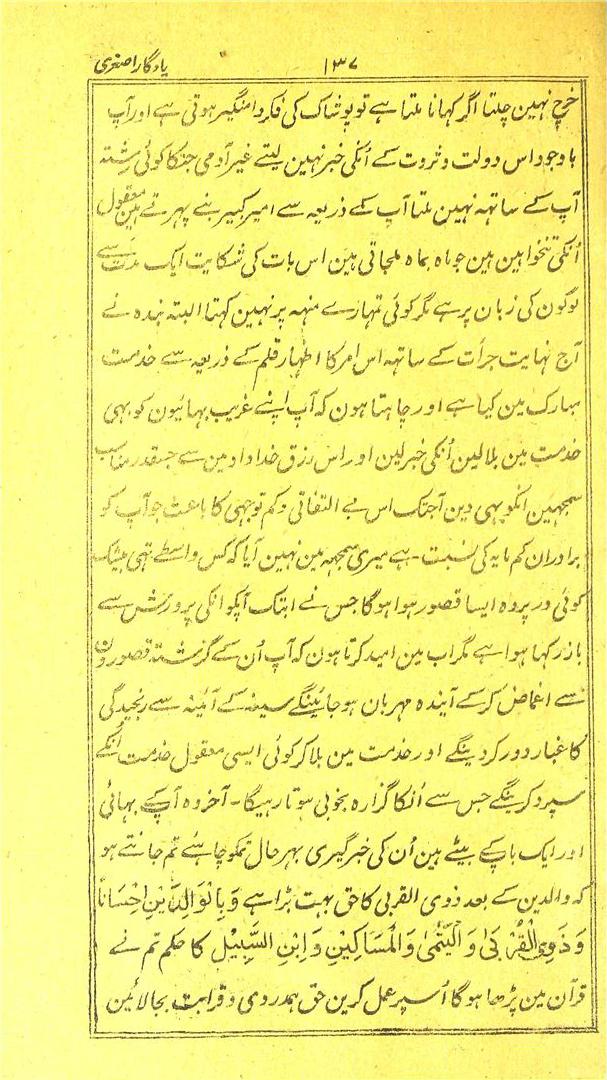 یادگار اصغری ۱۳۷
خرچ نہین چلتا اگر کہانا ملتا ہے تو پوشاک کی فکر دامنگیر ہوتی ہے اور آپ
باوجود اس دولت و ثروت کے اُنکی خبر نہین لیتے غیر آدمی جنکا کوئی رشتہ
آپ کے ساتہہ نہین ملتا آپ کے ذریعہ سے امیر کبیر بنے پہرتے ہین معقول
اُنکی تنخواہین ہین جو ماہ بماہ ملجاتی ہین اس بات کی شکایت ایک مدت سے
لوگون کی زبان پر ہے مگر کوئی تمہارے منہہ پر نہین کہتا البتہ بندہ نے
آج نہایت جرأت کے ساتہہ اس امر کا اظہار قلم کے ذریعہ سے خدمت
مبارک مین کیا ہے اور چاہتا ہون کہ آپ اپنے غریب بہائیون کو بہی
خدمت مین بلا لین اُنکی خبر لین اور اس رزق خداداد مین سے جسقدر مناسب
سمجہین انکو بہی دین آجتک اس بے التفاتی و کم توجہی کا باعث جو آپ کو
برادران کم مایہ کی نسبت ہے میری سمجہہ مین نہین آیا کہ کس واسطے تہی بیشک
کوئی در پردہ ایسا قصور ہوا ہوگا جس نے ابتک آپکو انکی پرورش سے
باز رکہا ہوا ہے مگر اب مین امید کرتا ہون کہ آپ اُن کے گزشتہ قصورون
سے اغماض کر کے آیندہ مہربان ہو جائینگے سینہ کے آئینہ سے رنجیدگی
کا غبار دور کر دینگے اور خدمت مین بلا کر کوئی ایسی معقول خدمت اُنکے
سپرد کرینگے جس سے اُنکا گزارہ بخوبی ہوتا رہیگا۔ آخر وہ آپ کے بہائی
اور ایک باپ کے بیٹے ہین اُن کی خبر گیری بہر حال تمکو چاہئے تم جانتے ہو
کہ والدین کے بعد ذوی القربی کا حق بہت بڑا ہے وَبِالْوَالِدَیْنِ اِحْسَانًا
وَّذَوِی الْقُرْبٰی وَالْیَتٰمٰی وَالْمَسَاکِیْنِ وَابْنِ السَّبِیْلِ کا حکم تم نے
قرآن مین پڑھا ہوگا اُسپر عمل کرین حق ہمدردی و قرابت بجا لائین